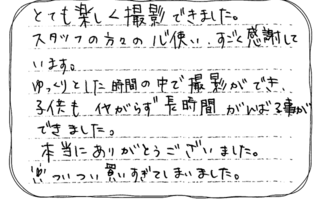 とても楽しく撮影できました。
スタッフの方々の心使い、すごく感謝して
います。
ゆっくりとした時間の中で撮影ができ、
子供も イヤがらず長時間 がんばる事が
できました。
本当にありがとうございました。
ついつい買いすぎてしまいました。